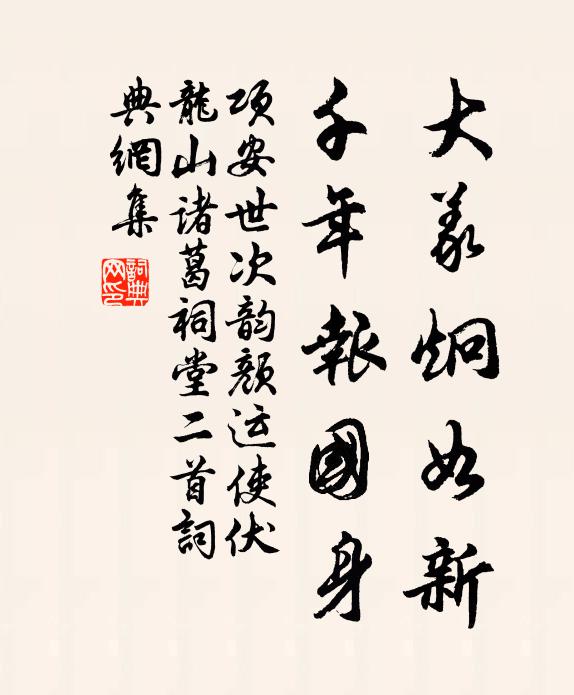 大义炯如新
千年報國身
项安世次韵颜运使伏
龍山诸葛祠堂二首詞
典網集
詞典
网印